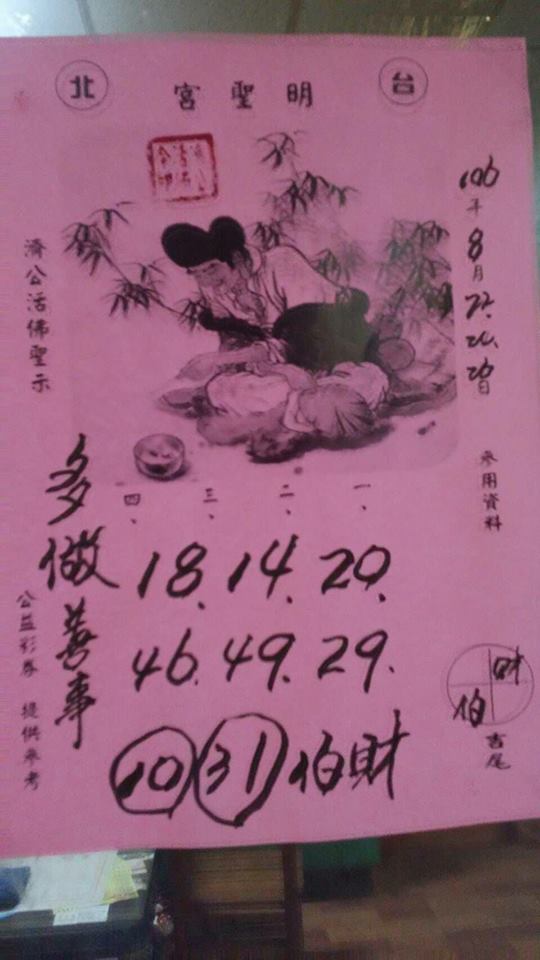 台北
明聖宮
106年8月22.24.26日
參用資料
一、
二、
三、
四、
20. 14. 18.
29. 49. 46.
10 31 伯財
財
伯
吉尾
多做善事
濟公活佛聖示
公益彩券 提供參考